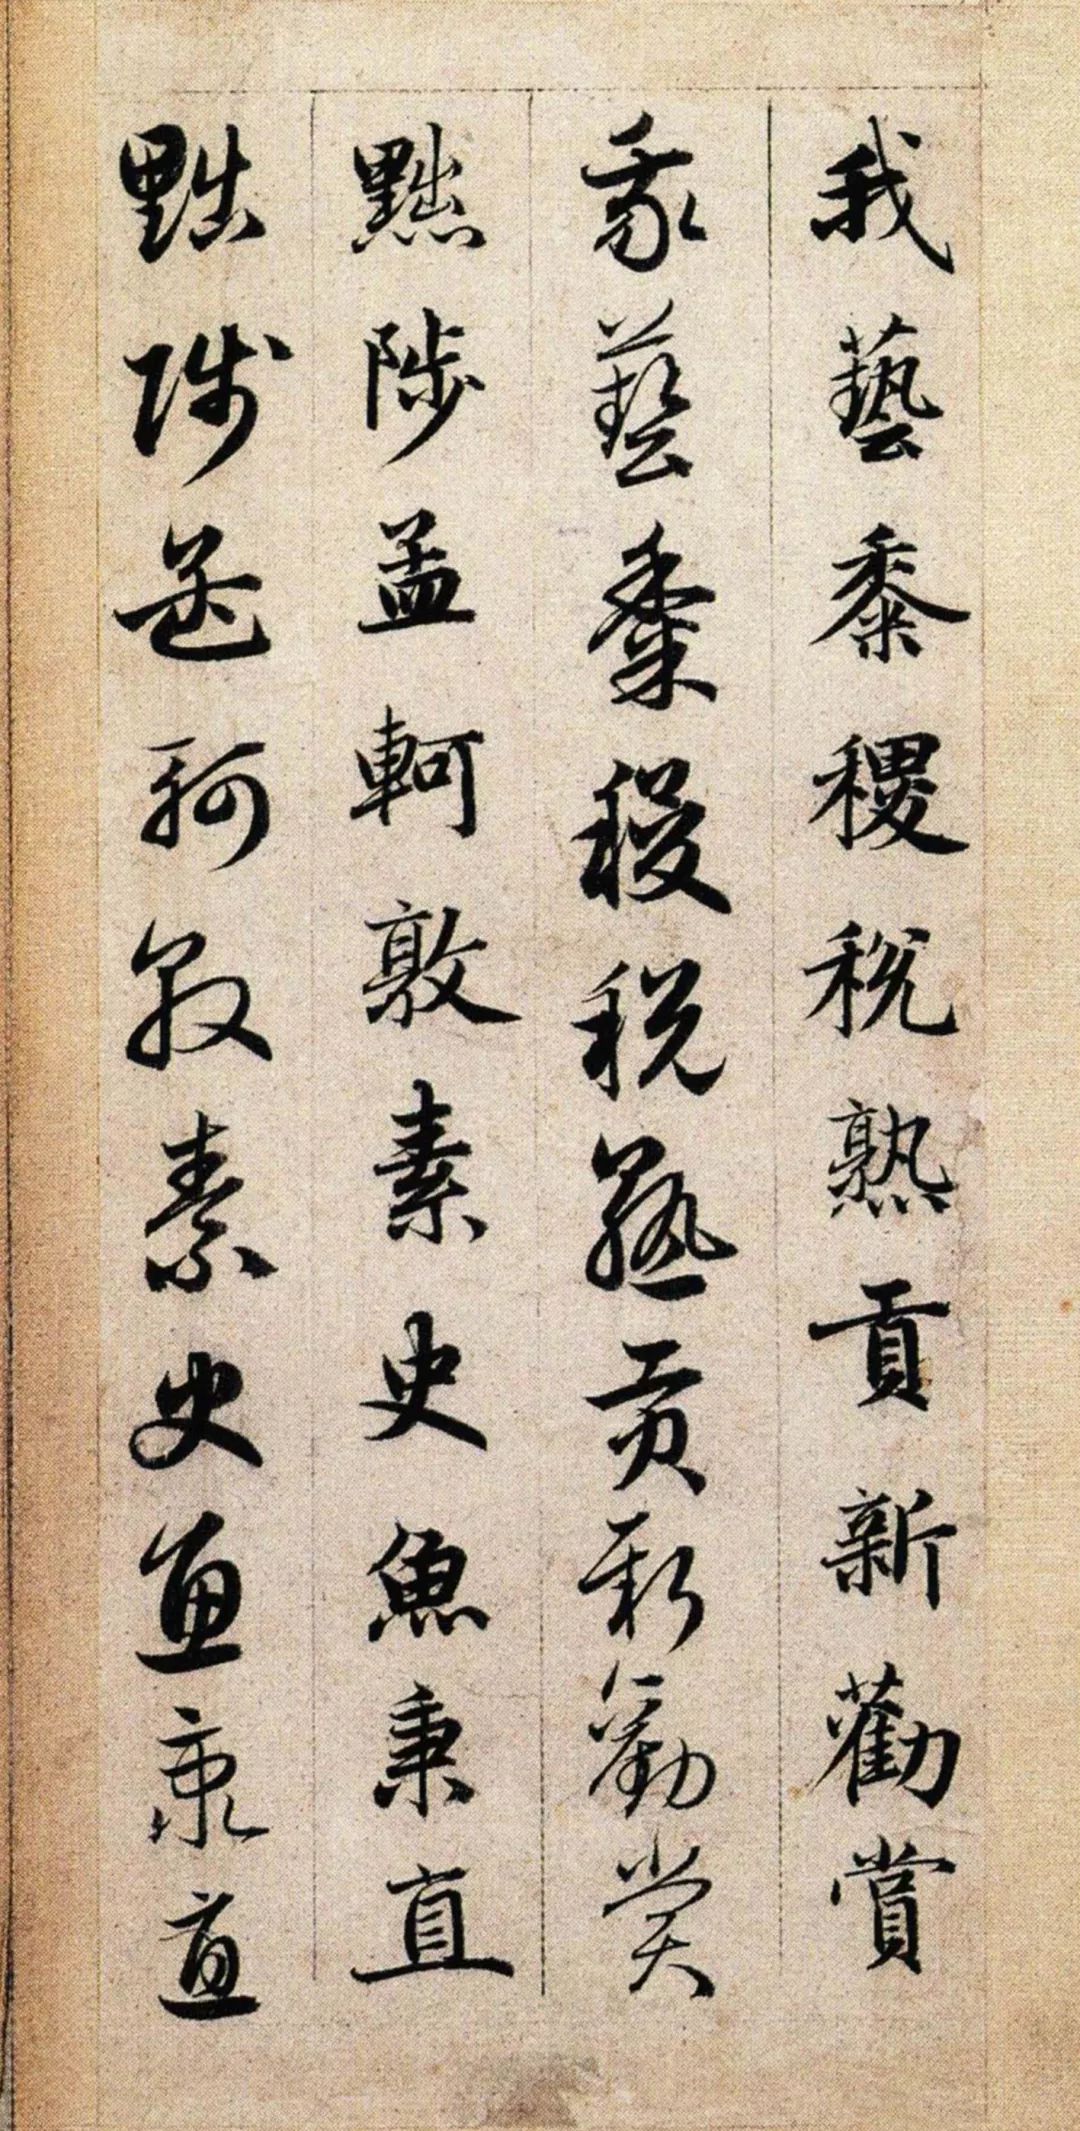 我藝黍稷稅熟貢新勸賞
我藝黍稷稅熟貢新勸賞
黜陟孟軻敦素史魚秉直
黜陟孟軻敦素史魚秉直